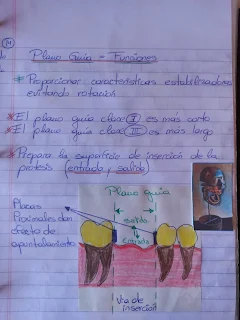 Plano Guía - Funciones
* Proporcionar características estabilizadoras
evitando rotación
* El plano guía clase II es mas corto
* El plano guía clase III es mas largo
* Prepara la superficie de inserción de la
protesis (entrada y salida)
Plano guía
Placas
Proximales dan
efecto de
apuntalamiento
salida
entrada
Vía de
inserción